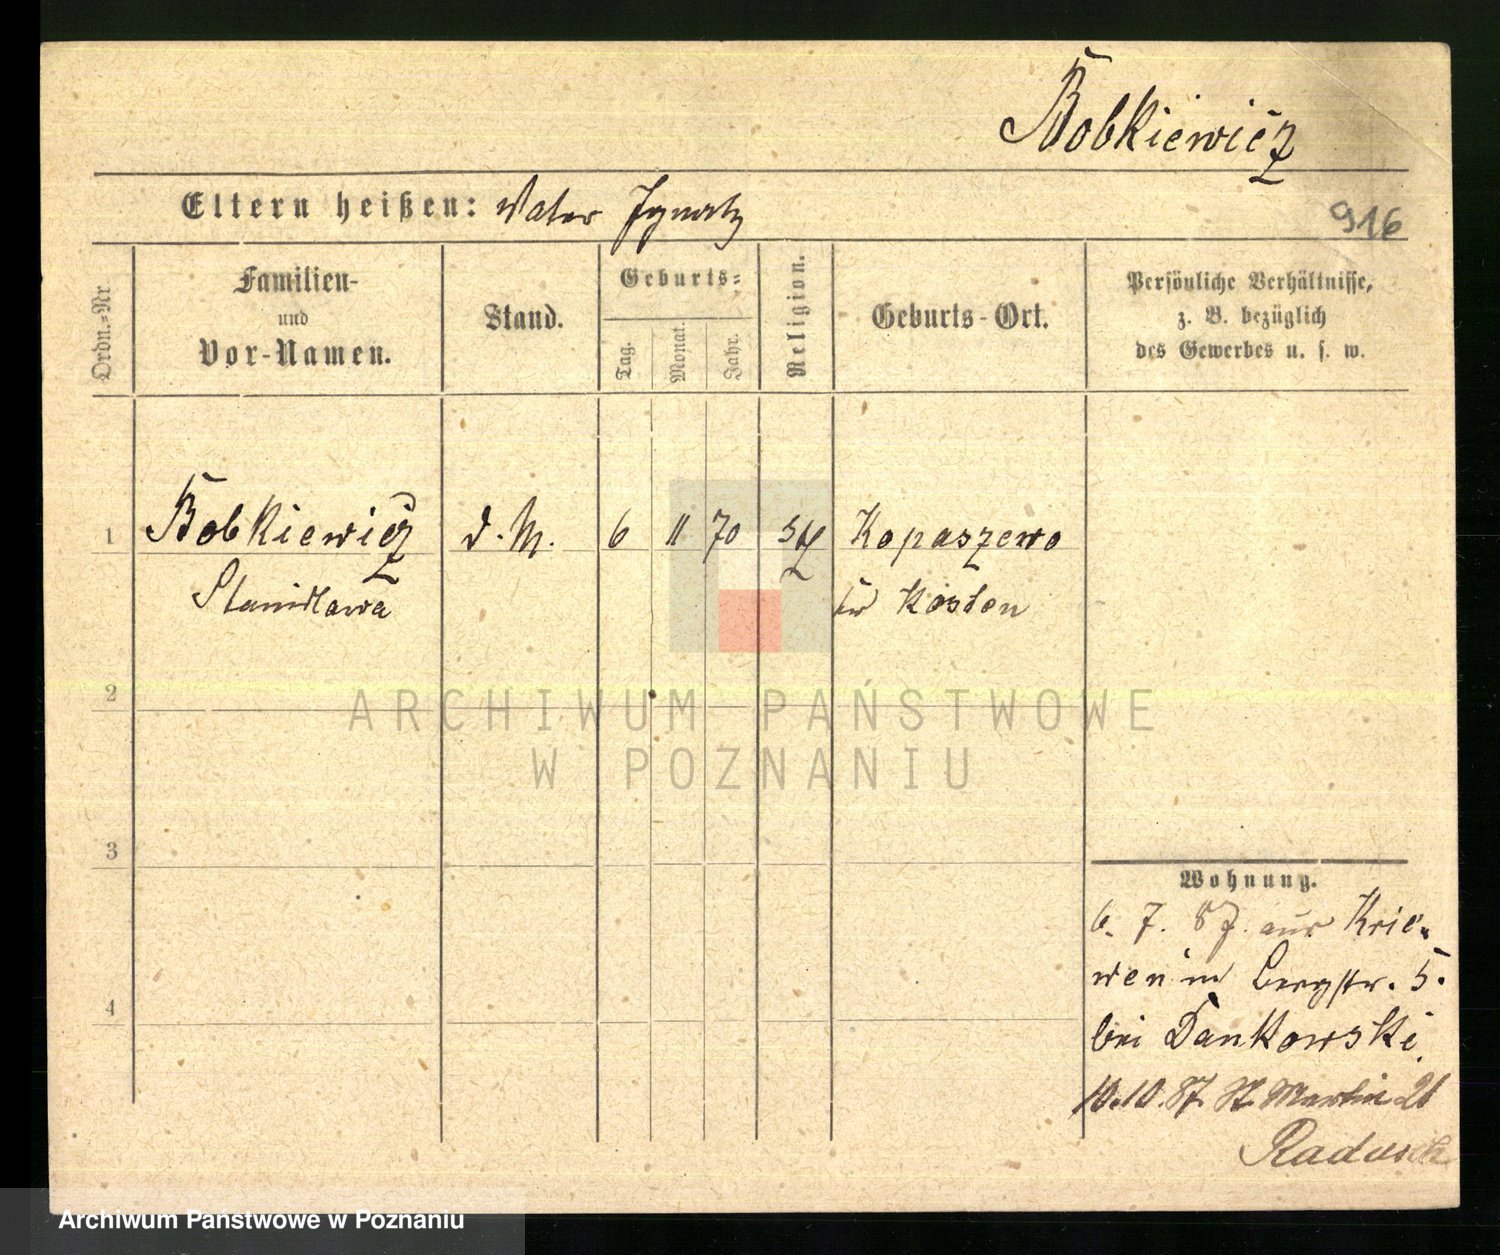 Bobkiewicz
Eltern heißen: Vater Ignatz
916
Ordn.-Nr
Familien-
und
Vor-Namen.
Stand.
Geburts-
Tag.
Monat.
Jahr.
Religion.
Geburts-Ort.
Persönliche Verhältnisse,
z. B. bezüglich
des Gewerbes u. s. w.
1 Bobkiewicz d. M. 6 11 70 Kopaszewo
Stanislawa Kr Kosten
2
ARCHIWUM PAŃSTWOWE
W POZNANIU
3
Wohnung.
6. 7. 87. aus Krie-
wen in Bergstr. 5.
4
bei Dankowski
10.10.87 St Martin 26
Radusch
Archiwum Państwowe w Poznaniu